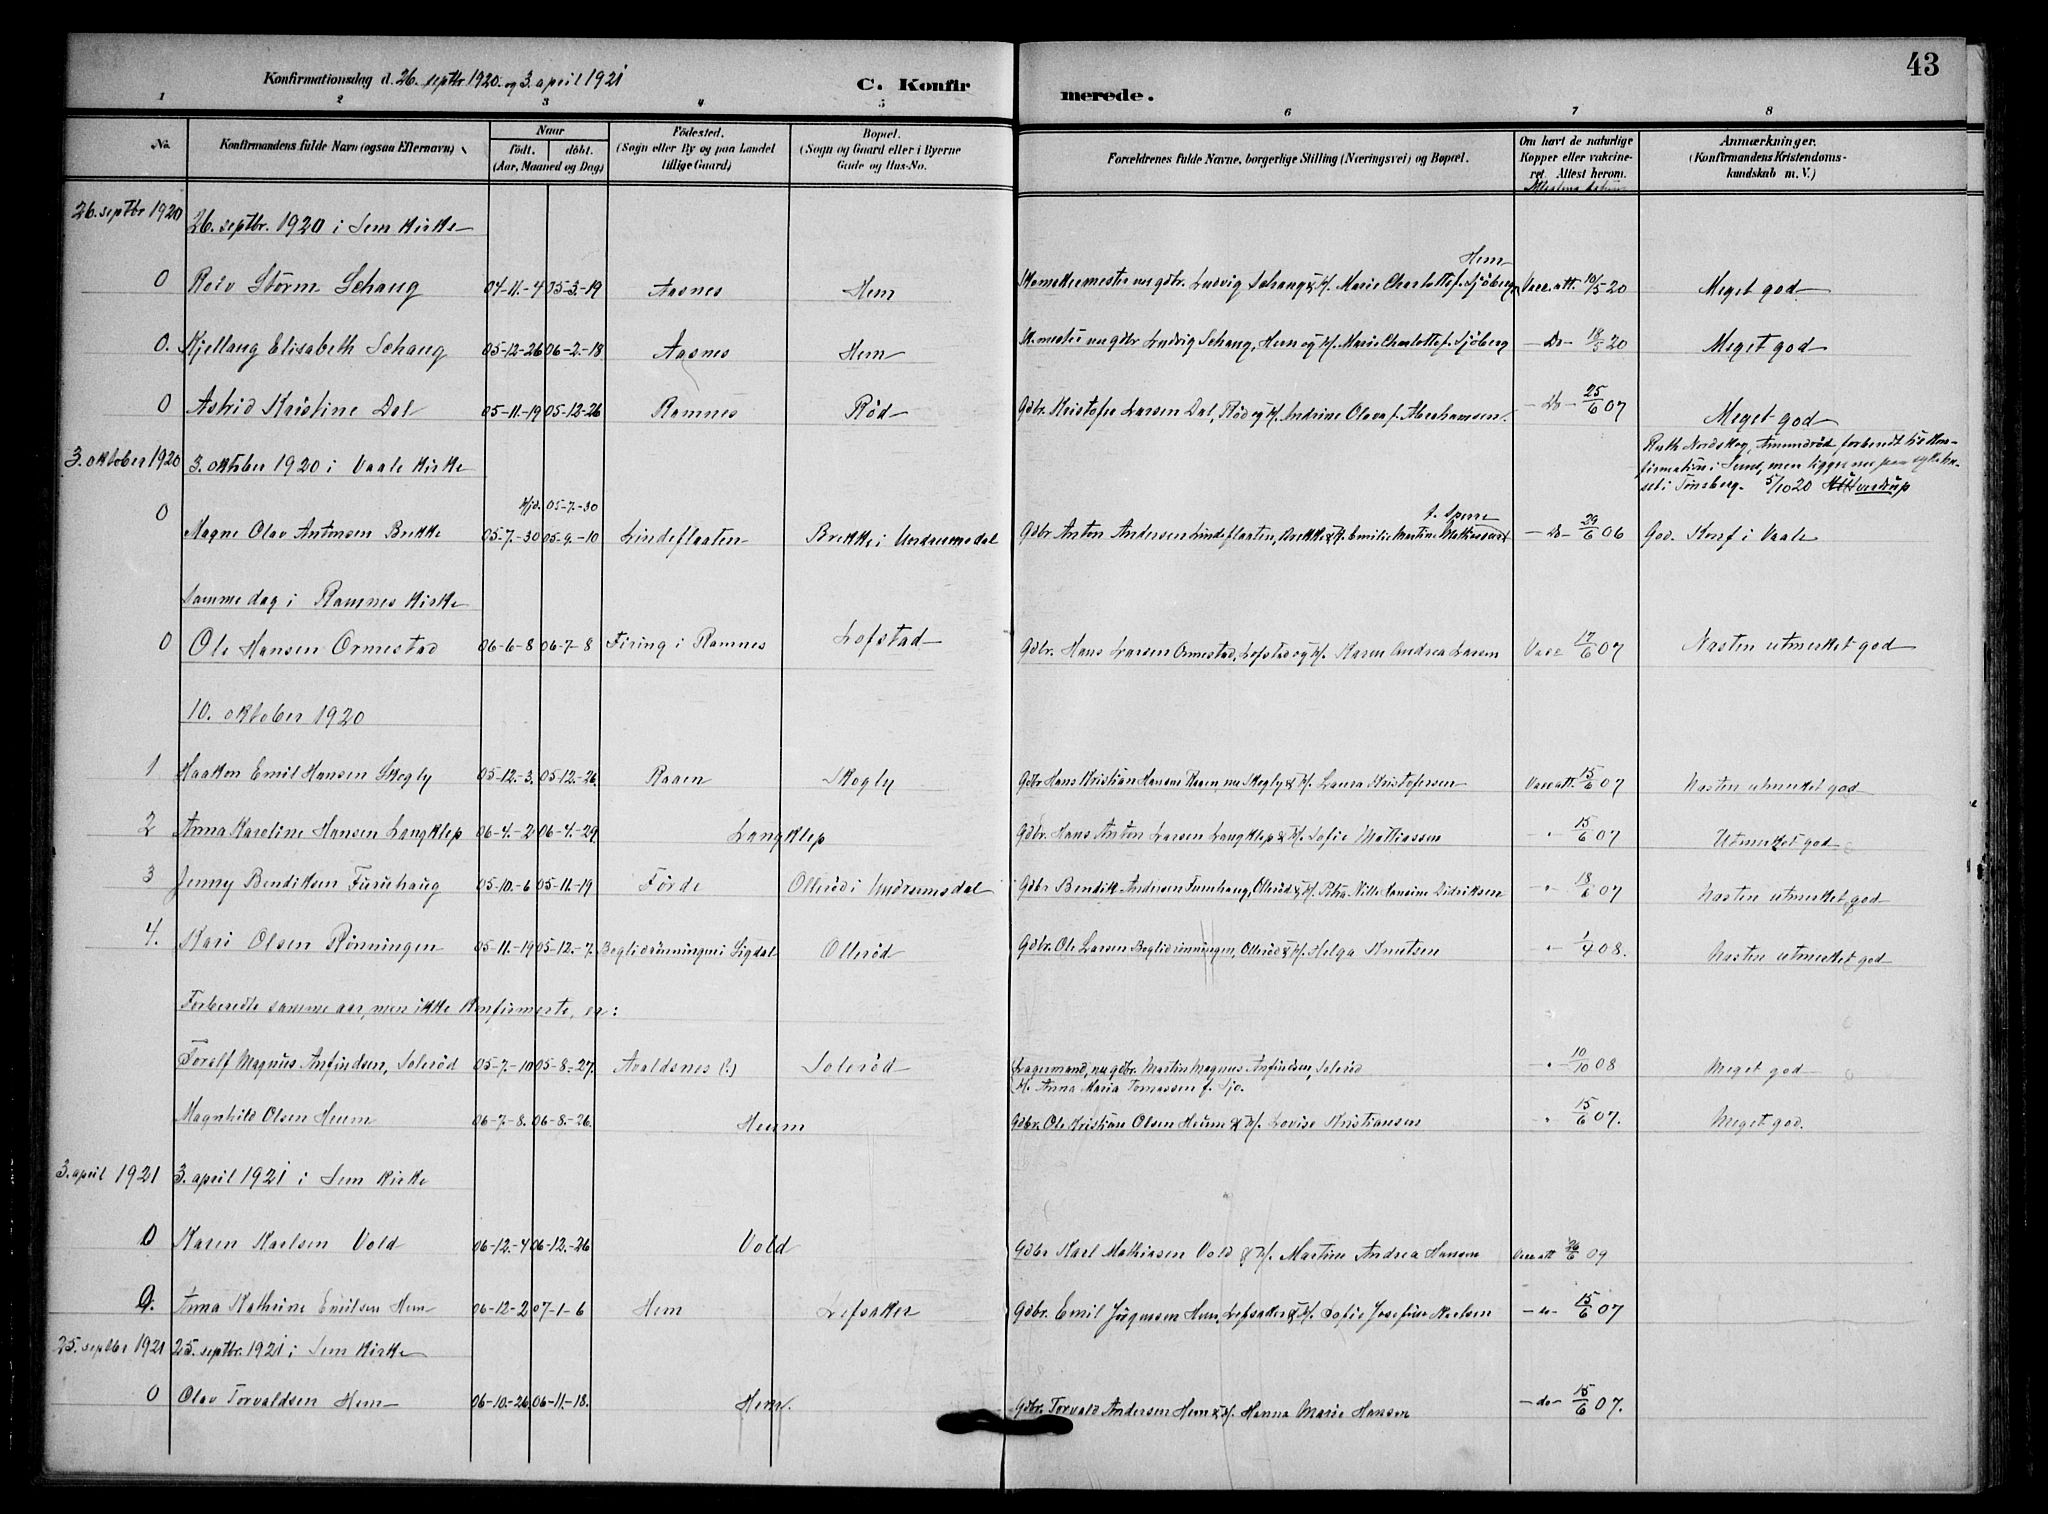 43
Konfirmationsdag d. 26. septbr 1920 og 3. april 1921
C. Konfirmerede.
1 2 3 4 5 6 7 8
No. Konfirmandens fulde Navn (ogsaa Efternavn) Naar Födested. Bopæl. Forældrenes fulde Navne, borgerlige Stilling (Næringsvei) og Bopæl. Om havt de naturlige Anmærkninger.
födt. döbt. (Sogn eller By og paa Landet (Sogn og Gaard eller i Byerne Kopper eller vakcine- (Konfirmandens Kristendoms-
(Aar, Maaned og Dag) tillige Gaard) Gade og Hus-No. ret. Attest herom. kundskab m. V.)
26. septbr 1920 26. septbr. 1920 i Sem Kirke
Hem
0 Storm Schaug 04-11-4 05-3-19 Aasnes Hem nu gdbr. Ludvig Schaug & H. Marie Charlotte f. Sjöberg Vacc. att. 10/5 20 Meget god
0. Kjellaug Elisabeth Schaug 05-12-26 06-2-18 Aasnes Hem nu gdbr Ludvig Schaug, Hem og H. Marie Charlotte f. Sjöberg - Do - 18/5 20 Meget god
0 Astrid Kristine Dal 05-11-19 05-12-26 Ramnes Röd Gdbr. Kristofer Larsen Dal, Röd og H. Andrine Olava f. Abrahamsen - Do - 25/6 07 Meget god
3. oktober 1920 3. oktober 1920 i Vaale Kirke Ruth Nordskog, Amundröd, forberedt til Kon-
firmation i Sem, men ligger nu paa sykehu-
set i Tönsberg. 5/10 20
Hjd. 05-7-30
0 Magne Olav Antonsen Brekke 05-7-30 05-9-10 Lindeflaaten Brekke i Undrumsdal Gdbr Anton Andersen Lindeflaaten, Brekke & H. Emilie Martine Mathiassen - Do - 29/6 06 God. Konf i Vaale
samme dag i Ramnes Kirke
0 Ole Hansen Ormestad 06-6-8 06-7-8 Firing i Ramnes Lofstad Gdbr. Hans Larsen Ormestad, Lofstad og H. Karen Andrea Larsen Vacc 17/6 07 Næsten utmerket god
10. oktober 1920
1 Haakon Emil Hansen Skogly 05-12-3. 05-12-26. Raaen Skogly Gdbr Hans Kristian Hansen Raaen, nu Skogly & H. Laura Kristofersen Vacc att. 15/6 07 Næsten utmerket god
2 Anna Karoline Hansen Langklep 06-4-2 06-4-29. Langklep Gdbr. Hans Anton Larsen Langklep & H. Sofie Mathiassen - " - 15/6 07 Utmerket god
3 Jenny Bendiksen Furuhaug 05-10-6 05-11-19 Förde Olleröd i Undrumsdal Gdbr Bendik Andersen Furuhaug, Olleröd & H. Petra Nilla Hansine Didriksen - " - 18/6 07 Næsten utmerket god
4. Kari Olsen Rönningen 05-11-19 05-12-7. Boglidrönningen i Sigdal Olleröd Gdbr. Ole Larsen Boglidrönningen, Olleröd & H. Helga Knutsen " - 1/4 08. Næsten utmerket god
Forberedte samme aar, men ikke konfirmerte, er:
Torolf Magnus Anfindsen, Soleröd 05-7-10 05-8-27. Avaldsnes (?) Soleröd Lagermand, nu gdbr. Martin Magnus Anfindsen, Soleröd " - 10/10 08 Meget god
H. Anna Maria Tomassen f. Sjo.
Magnhild Olsen Heum 06-7-8. 06-8-26. Heum Gdbr. Ole Kristian Olsen Heum & H. Lovise Kristiansen - " 15/6 07. Meget god.
3. april 1921 3. april 1921 i Sem Kirke
0 Karen Karlsen Vold 06-12-4 06-12-26 Vold Gdbr Karl Mathiasen Vold & H. Martine Andrea Hansen Vacc att 26/6 09
0. Anna Kathrine Emilsen Hem 06-12-2 07-1-6 Hem Lefsaker Gdbr. Emil Jörgensen Hem, Lefsaker & H. Sofie Josefine Karlsen - " - 15/6 07
25. septbr 1921 25. septbr. 1921 i Sem Kirke
0 Olav Torvaldsen Hem 06-10-26 06-11-18. Hem. Gdbr. Torvald Andersen Hem & H. Hanna Marie Hansen - do - 15/6 07.